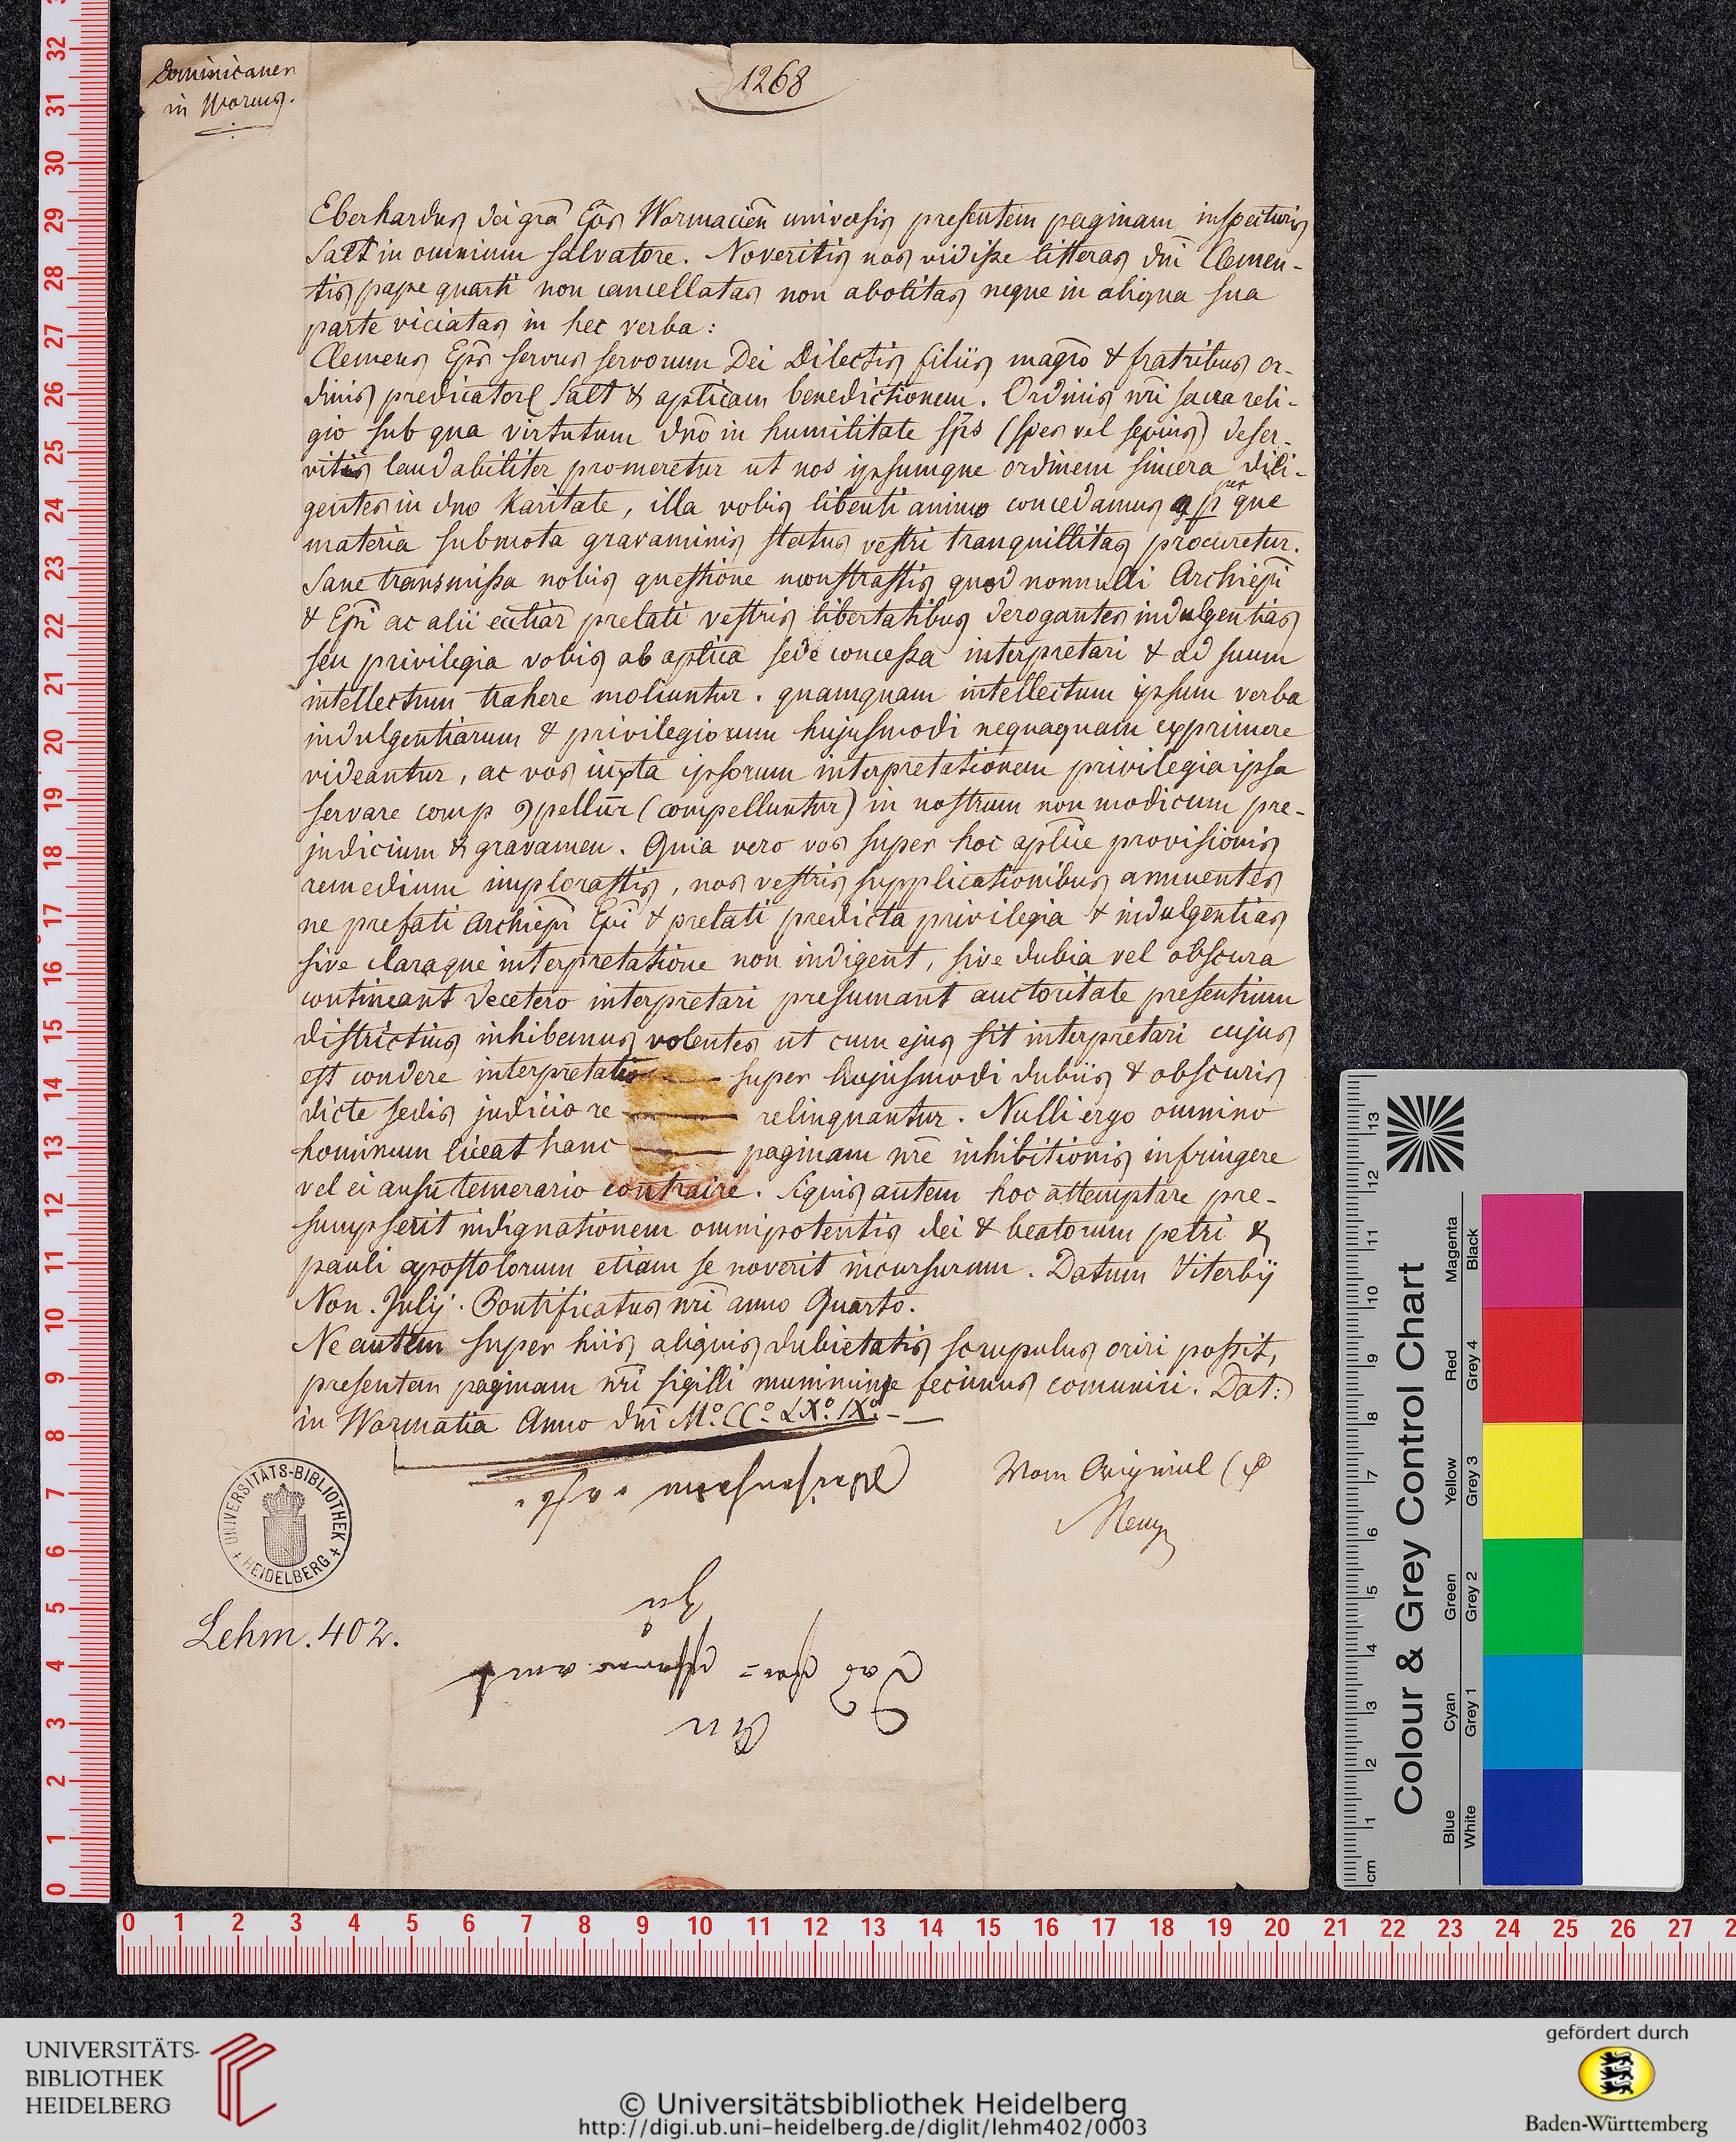 Dominicaner
in Worms.
1268
Eberhardus dei gra Eps Wormacien universis presentem paginam inspecturis
Salt in omnium salvatore. Noveritis nos vidisse litteras dni Clemen-
tis pape quarti non cancellatas non abolitas neque in aliqua sua
parte viciatas in hec verba:
Clemens Eps servus servorum Dei Dilectis filiis magro & fratribus or-
dinis predicator Salt & aplicam benedictionem. Ordinis nri sacra reli-
gio sub qua virtutum dno in humilitate sps (spes vel sepius) deser-
vitis laudabiliter promeretur ut nos ipsumque ordinem sincera dili-
gentes in dno karitate, illa vobis libenti animo concedamus per que
materia submota gravaminis status vestri tranquillitas procuretur.
Sane transmissa nobis questione monstrastis quod nonnulli Archiepi
& Epi ac alii etiam prelati vestris libertatibus derogantes indulgentias
seu privilegia vobis ab aplica sede concessa interpretari & ad suum
intellectum trahere moliuntur. quamquam intellectum ipsum verba
indulgentiarum & privilegiorum hujusmodi nequaquam exprimere
videantur, ac vos iuxta ipsorum interpretationem privilegia ipsa
servare comp pellur (compelluntur) in nostrum non modicum pre-
judicium & gravamen. Quia vero vos super hoc aplice provisionis
remedium implorastis, nos vestris supplicationibus annuentes
ne prefati Archiepi Epi & prelati predicta privilegia & indulgentias
sive claraque interpretatione non indigent, sive dubia vel obscura
contineant decetero interpretari presumant auctoritate presentium
districtius inhibemus volentes ut cum ejus sit interpretari cujus
est condere interpretatio — super hujusmodi dubiis & obscuris
dicte sedis judicio re — relinquantur. Nulli ergo omnino
hominum liceat hanc — paginam nre inhibitionis infringere
vel ei ausu temerario contraire. Siquis autem hoc attemptare pre-
sumpserit indignationem omnipotentis dei & beatorum petri &
pauli apostolorum etiam se noverit incursurum. Datum Viterbij
Non. Julij. Pontificatus nri anno Quarto.
Ne autem super hiis aliquis dubietatis scrupulus oriri possit,
presentem paginam nri sigilli munimine fecimus comuniri. Dat:
in Wormatia Anno dni M°. CC°. LX°. IX°. - —
Vom Original
UNIVERSITÄTS-BIBLIOTHEK
HEIDELBERG
Lehm. 402.
An
Das
Colour & Grey Control Chart
Blue Cyan Green Yellow Red Magenta
White Grey 1 Grey 2 Grey 3 Grey 4 Black
cm 1 2 3 4 5 6 7 8 9 10 11 12 13
0 1 2 3 4 5 6 7 8 9 10 11 12 13 14 15 16 17 18 19 20 21 22 23 24 25 26 27 28 29 30 31 32
0 1 2 3 4 5 6 7 8 9 10 11 12 13 14 15 16 17 18 19 20 21 22 23 24 25 26 27
UNIVERSITÄTS-
BIBLIOTHEK
HEIDELBERG
© Universitätsbibliothek Heidelberg
http://digi.ub.uni-heidelberg.de/diglit/lehm402/0003
gefördert durch
Baden-Württemberg